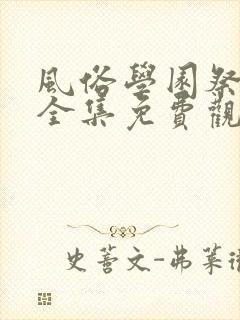 風俗學園祭
全集免費觀
史蒂文-弗萊徹